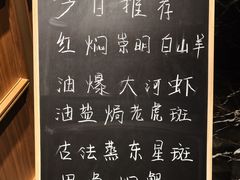 今日推荐
红焖崇明白山羊
油爆大河虾
油盐焗老虎斑
古法蒸东星斑